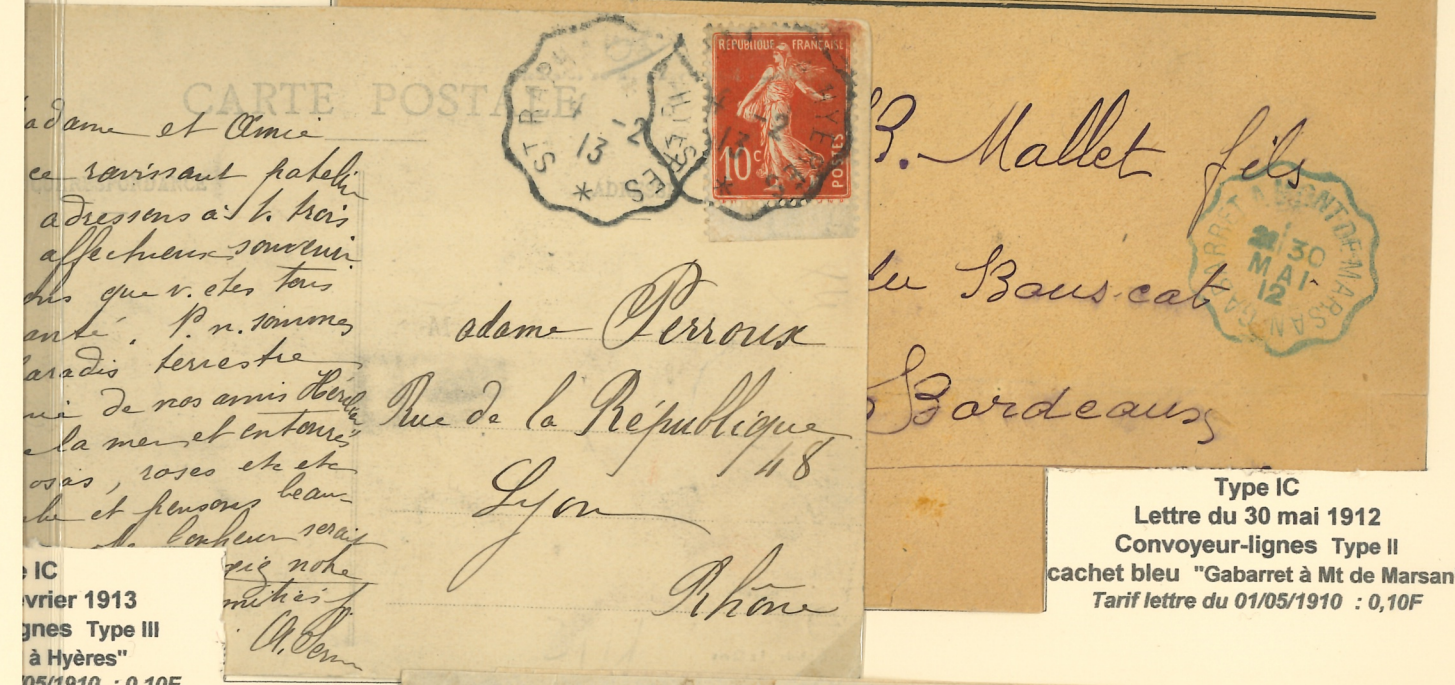 CARTE POSTALE
CORRESPONDANCE
ADRESSE
adame et Amie
ce ravissant patelin
adressons à v. trois
affectueux souvenir
ons que v. etes tous
anté. P. n. sommes
aradis terrestre
de nos amis
la mer et entourés
osas, roses etc etc
et pensons beau-
bonheur serait
notre
mitiés
ST RAPH
HYERES
2
13
REPUBLIQUE FRANÇAISE
10c
POSTES
adame Perroux
Rue de la République
48
Lyon
Rhône
e IC
évrier 1913
gnes Type III
à Hyères"
/05/1910 : 0,10F
B. Mallet fils
du Bouscat
Bordeaux
GABARRET A MONT DE MARSAN
30
MAI
12
Type IC
Lettre du 30 mai 1912
Convoyeur-lignes Type II
cachet bleu "Gabarret à Mt de Marsan
Tarif lettre du 01/05/1910 : 0,10F